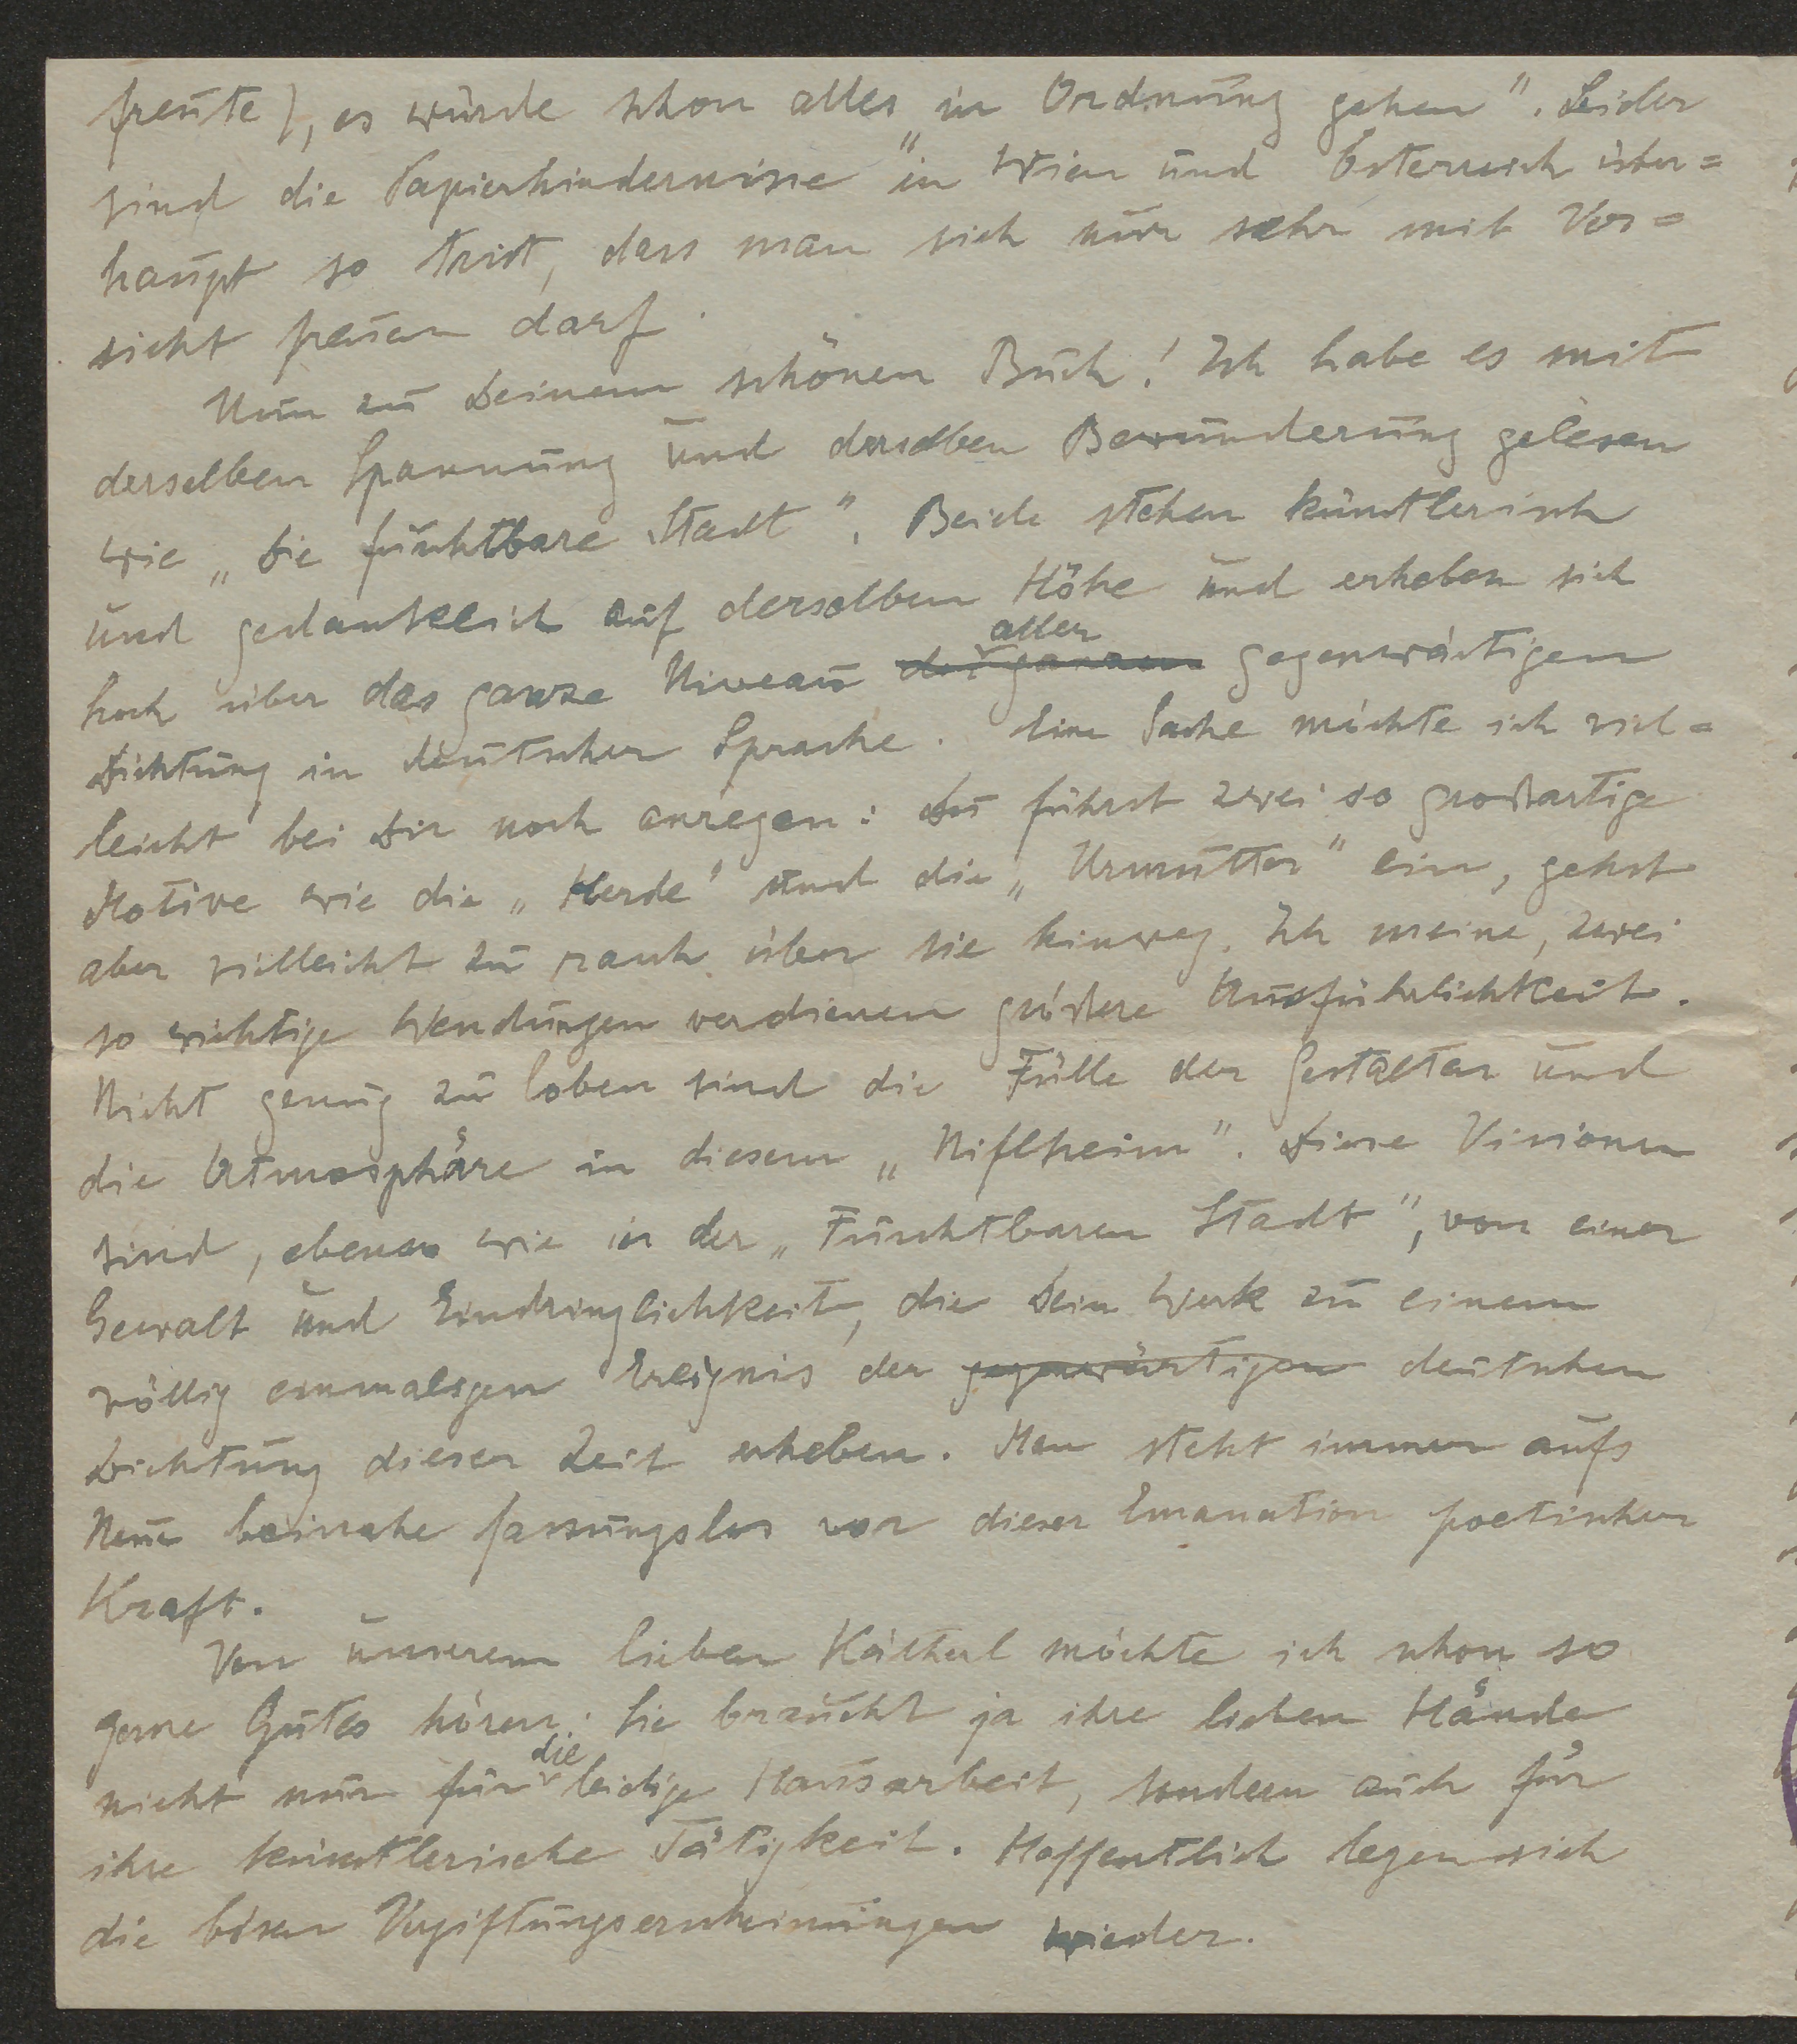 freute), es würde schon alles „in Ordnung gehen“. Leider
sind die Papierhindernisse in Wien und Österreich über=
haupt so trist, dass man sich nur sehr mit Vor=
sicht freuen darf.
Nun zu Deinem schönen Buch! Ich habe es mit
derselben Spannung und derselben Bewunderung gelesen
wie „Die furchtbare Stadt“. Beide stehen künstlerisch
und gedanklich auf derselben Höhe und erheben sich
hoch über das ganze Niveau der ganzen aller gegenwärtigen
Dichtung in deutscher Sprache. Eine Sache möchte ich viel=
leicht bei Dir noch anregen: Du führst zwei so großartige
Motive wie die „Herde“ und die „Urmutter“ ein, gehst
aber vielleicht zu rasch über sie hinweg. Ich meine, zwei
so wichtige Wendungen verdienen größere Ausführlichkeit.
Nicht genug zu loben sind die Fülle der Gestalten und
die Atmosphäre in diesem „Niflheim“. Diese Visionen
sind, ebenso wie in der „Furchtbaren Stadt“, von einer
Gewalt und Eindringlichkeit, die Dein Werk zu einem
völlig einmaligen Ereignis der gegenwärtigen deutschen
Dichtung dieser Zeit erheben. Man steht immer aufs
Neue beinahe fassungslos vor dieser Emanation poetischer
Kraft.
Von unserem lieben Katherl möchte ich schon so
gerne Gutes hören. Sie braucht ja ihre lieben Hände
nicht nur für die leidige Hausarbeit, sondern auch für
ihre künstlerische Tätigkeit. Hoffentlich legen sich
die bösen Vergiftungserscheinungen wieder.